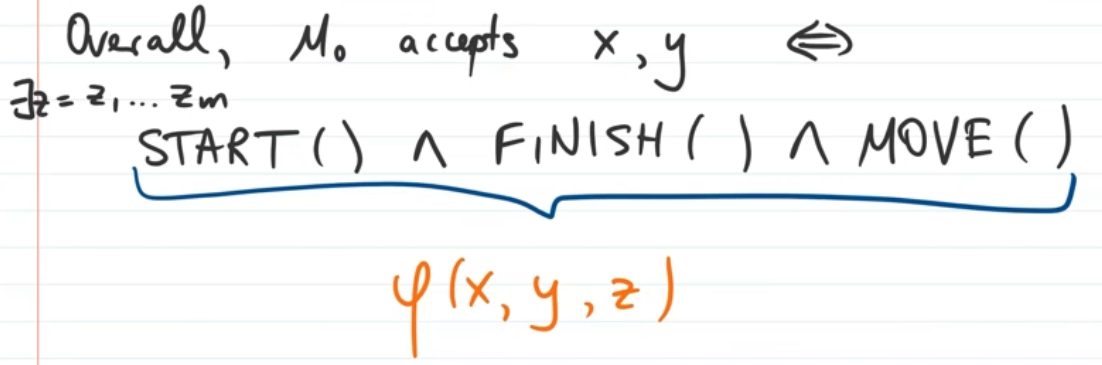 Overall, M₀ accepts x, y ⇔
∃z = z₁ ... zₘ
START ( ) ∧ FINISH ( ) ∧ MOVE ( )
φ(x, y, z)